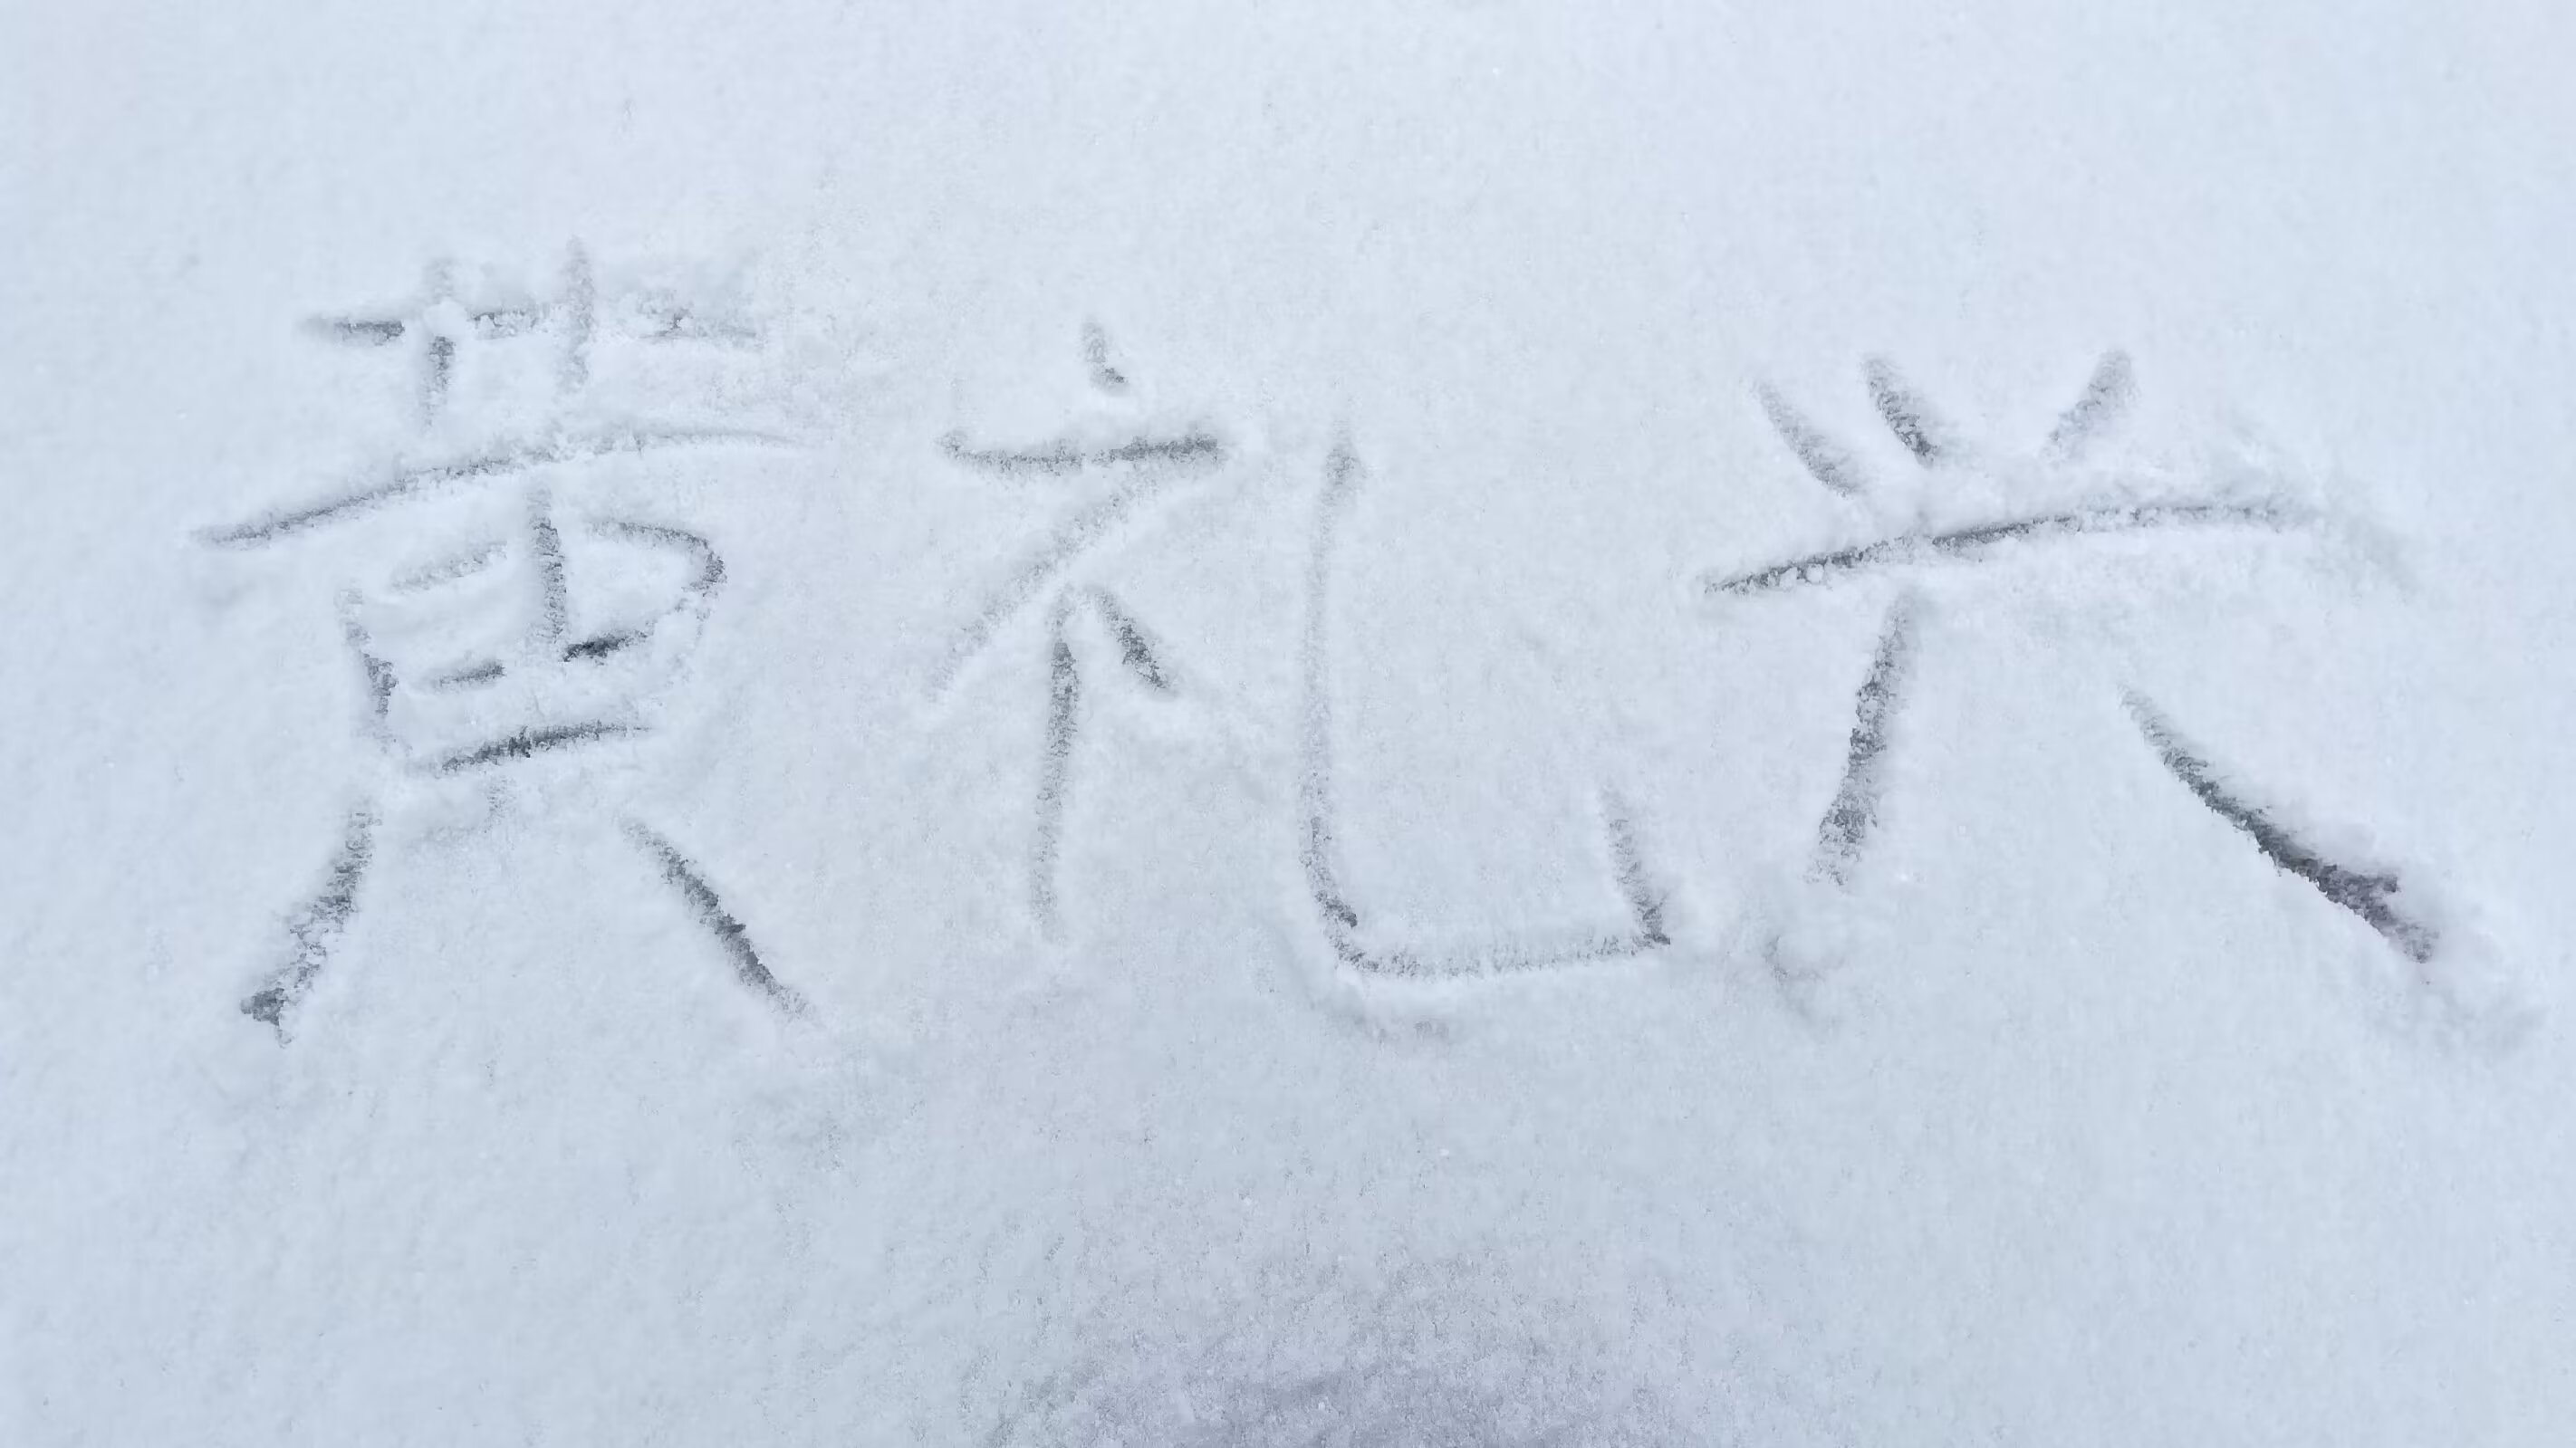 黄礼兴